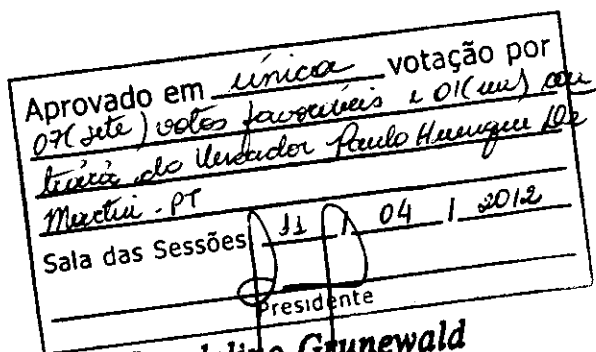 Aprovado em única votação por
07 (sete) votos favoráveis e 01 (um) con
trário do Vereador Paulo Henrique De
Martini - PT
Sala das Sessões 11 / 04 / 2012
Presidente
Grunewald